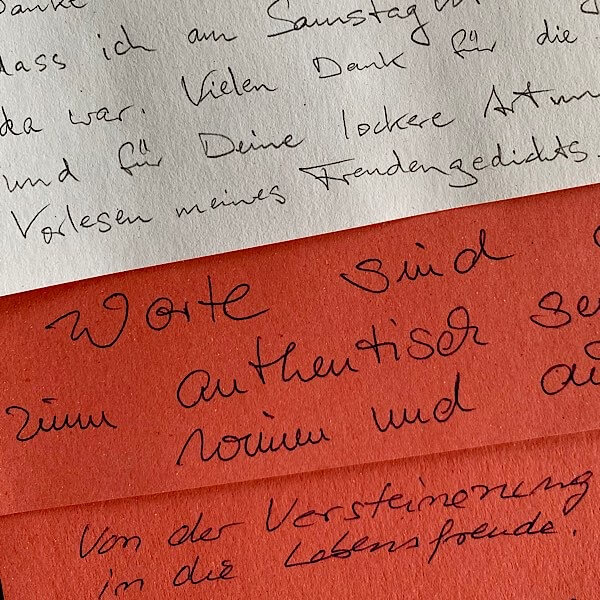 Danke
dass ich am Samstag
da war. Vielen Dank für die
und für Deine lockere Art
Vorlesen meines Freudengedichts.
Worte sind
zum authentisch
und
Von der Versteinerung
in die Lebensfreude.